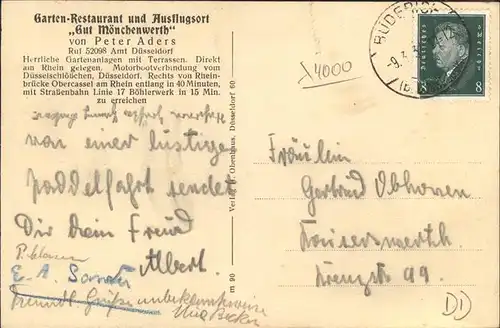 Garten-Restaurant und Ausflugsort
"Gut Mönchenwerth"
von Peter Aders
Ruf 52098 Amt Düsseldorf
Herrliche Gartenanlagen mit Terrassen. Direkt
am Rhein gelegen. Motorbootverbindung vom
Düsselschlößchen, Düsseldorf. Rechts von Rhein-
brücke Obercassel am Rhein entlang in 40 Minuten,
mit Straßenbahn Linie 17 Böhlerwerk in 15 Min.
zu erreichen
von einer lustigen
Paddelfahrt sendet
Dir Dein Freund
Albert.
E. A.
Freundl. Grüße unbekannterweise
Verlag
Düsseldorf 60
m 90
BÜDERICH
Deutsches Reich
8 8
4000
Fräulein
Gertrud
Kaiserswerth
99.
DD